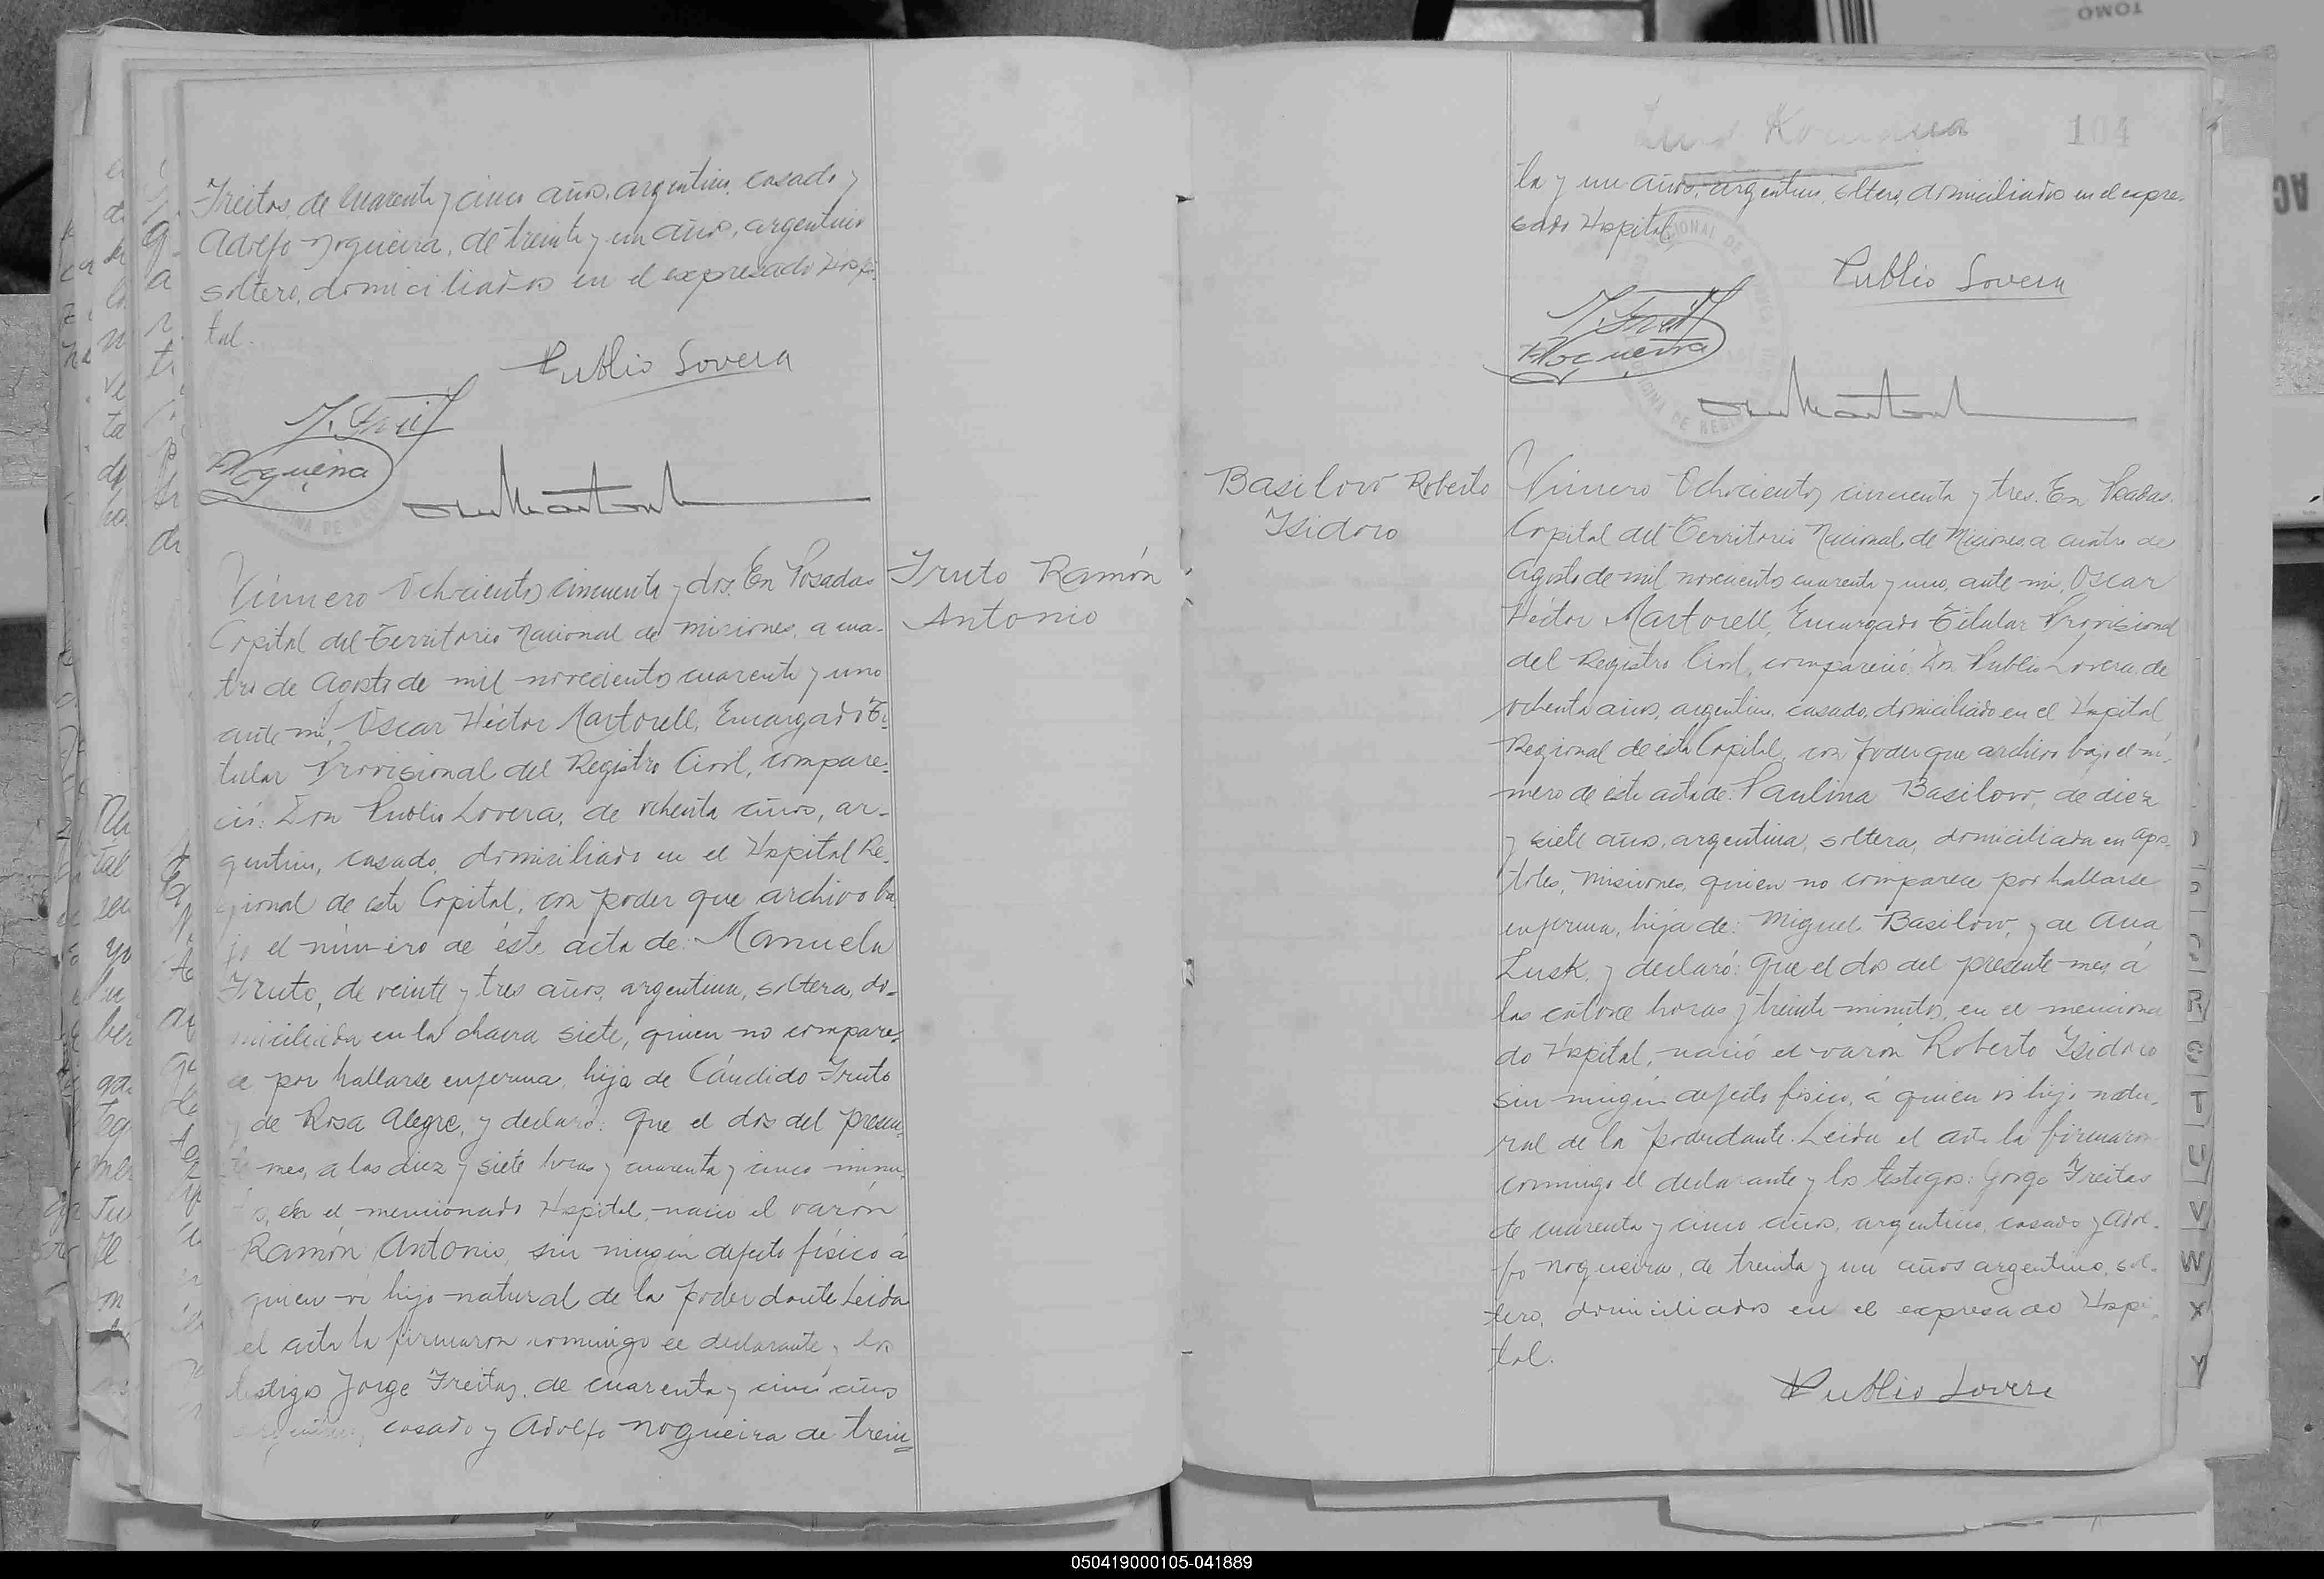 Freitas, de cuarenta y cinco años, argentino, casado y
Adolfo Nogueira, de treinta y un años, argentino
soltero, domiciliados en el expresado Hospi-
tal.
Publio Lovera
J. Freit
ANogueira
Número Ochocientos cincuenta y dos. En Posadas
Capital del Territorio Nacional de Misiones, a cua-
tro de Agosto de mil novecientos cuarenta y uno
ante mí, Oscar Héctor Martorell, Encargado Ti-
tular Provisional del Registro Civil, compare-
ció: Don Publio Lovera, de ochenta años, ar-
gentino, casado, domiciliado en el Hospital Re-
gional de esta Capital, con poder que archivo ba-
jo el número de éste acta de: Manuela
Fruto, de veinte y tres años, argentina, soltera, do-
miciliada en la chacra siete, quien no compare-
ce por hallarse enferma, hija de Cándido Fruto
y de Rosa Alegre, y declaró: Que el dos del presen-
te mes, a las diez y siete horas y cuarenta y cinco minu-
tos, en el mencionado Hospital, nació el varón
Ramón Antonio, sin ningún defecto físico á
quien ví hijo natural de la poderdante Leida
el acta la firmaron conmigo el declarante y los
testigos Jorge Freitas, de cuarenta y cinco años
argentino, casado y Adolfo Nogueira de trein-
Fruto Ramón
Antonio
104
ta y un años, argentino, soltero, domiciliados en el expre-
sado Hospital.
Publio Lovera
J. Freit
ANogueira
OFICINA DE REGI
Basilovo Roberto
Isidoro
Número Ochocientos cincuenta y tres. En Posadas.
Capital del Territorio Nacional de Misiones a cuatro de
Agosto de mil novecientos cuarenta y uno, ante mí, Oscar
Héctor Martorell, Encargado Titular Provisional
del Registro Civil, compareció: Don Publio Lovera, de
ochenta años, argentino, casado, domiciliado en el Hospital
Regional de ésta Capital, con poder que archivo bajo el nú-
mero de éste acta de: Paulina Basilovo, de diez
y siete años, argentina, soltera, domiciliada en Após-
toles, Misiones, quien no comparece por hallarse
enferma, hija de: Miguel Basilovo, y de Ana
Lusk, y declaró: Que el dos del presente mes á
las catorce horas y treinta minutos, en el menciona
do Hospital, nació el varón Roberto Isidoro
sin ningún defecto físico, á quien ví hijo natu-
ral de la poderdante. Leida el acta la firmaron
conmigo el declarante y los testigos: Jorge Freitas
de cuarenta y cinco años, argentino, casado y Adol-
fo Nogueira, de treinta y un años argentino, sol-
tero, domiciliados en el expresado Hospi-
tal.
Publio Lovera
R
T
U
V
W
X
Y
TOMO
050419000105-041889